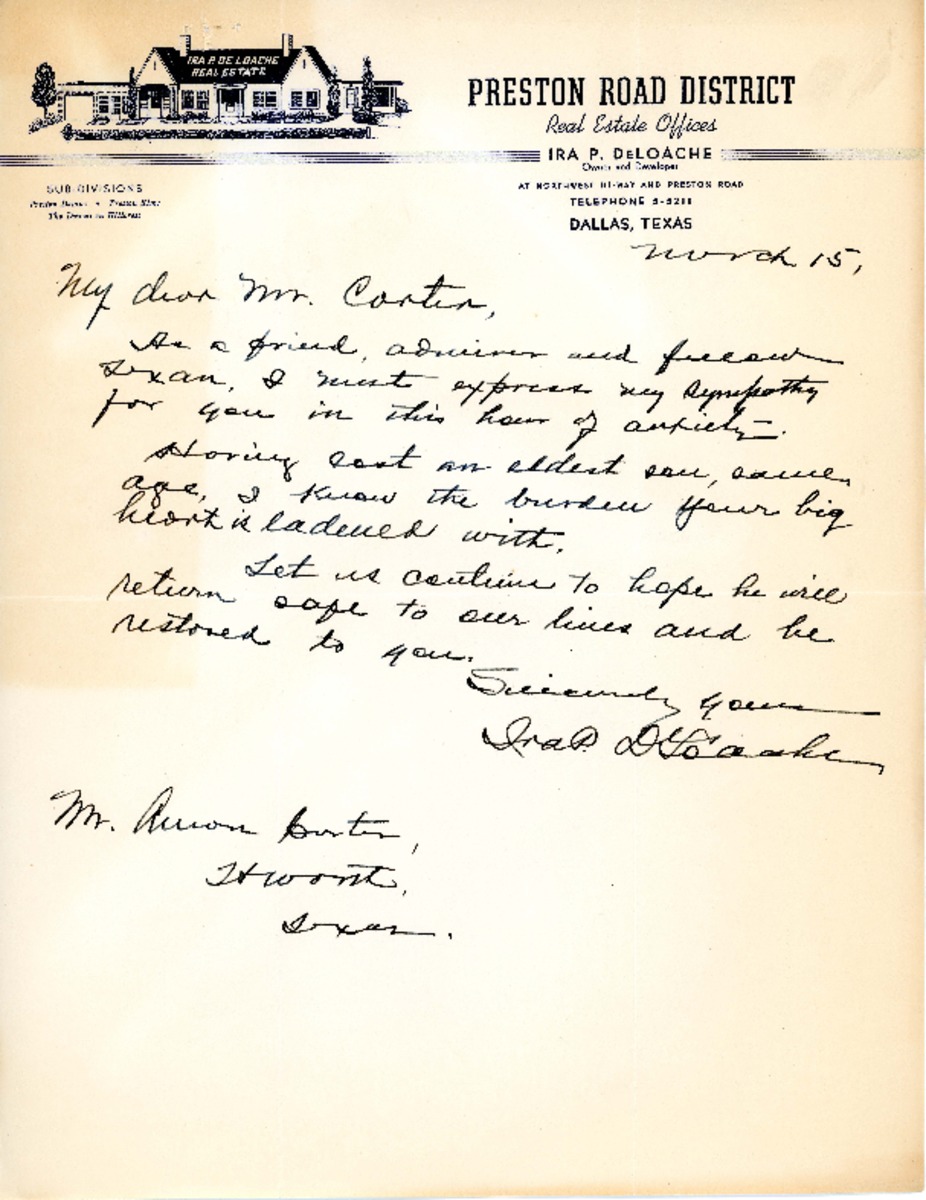 IRA P. DE LOACHE
REAL ESTATE
PRESTON ROAD DISTRICT
Real Estate Offices
IRA P. DeLOACHE
Owner and Developer
AT NORTHWEST HI-WAY AND PRESTON ROAD
TELEPHONE 5-5211
DALLAS, TEXAS
SUB-DIVISIONS
Preston
The Downs on Hillcrest
March 15,
My dear Mr. Carter,
As a friend, admirer and fellow
Texan, I must express my sympathy
for you in this hour of anxiety.
Having lost an eldest son, same
age, I know the burden your big
heart is ladened with.
Let us continue to hope he will
return safe to our lines and be
restored to you.
Sincerely yours
Ira P. DeLoache
Mr. Amon Carter,
Ft Worth,
Texas.